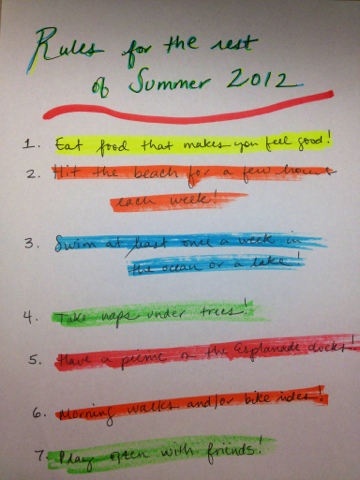 Rules for the rest
of Summer 2012
1. Eat food that makes you feel good!
2. Hit the beach for a few hours
each week!
3. Swim at least once a week in
the ocean or a lake!
4. Take naps under trees!
5. Have a picnic on the Esplanade docks!
6. Morning walks and/or bike rides!
7. Play often with friends!